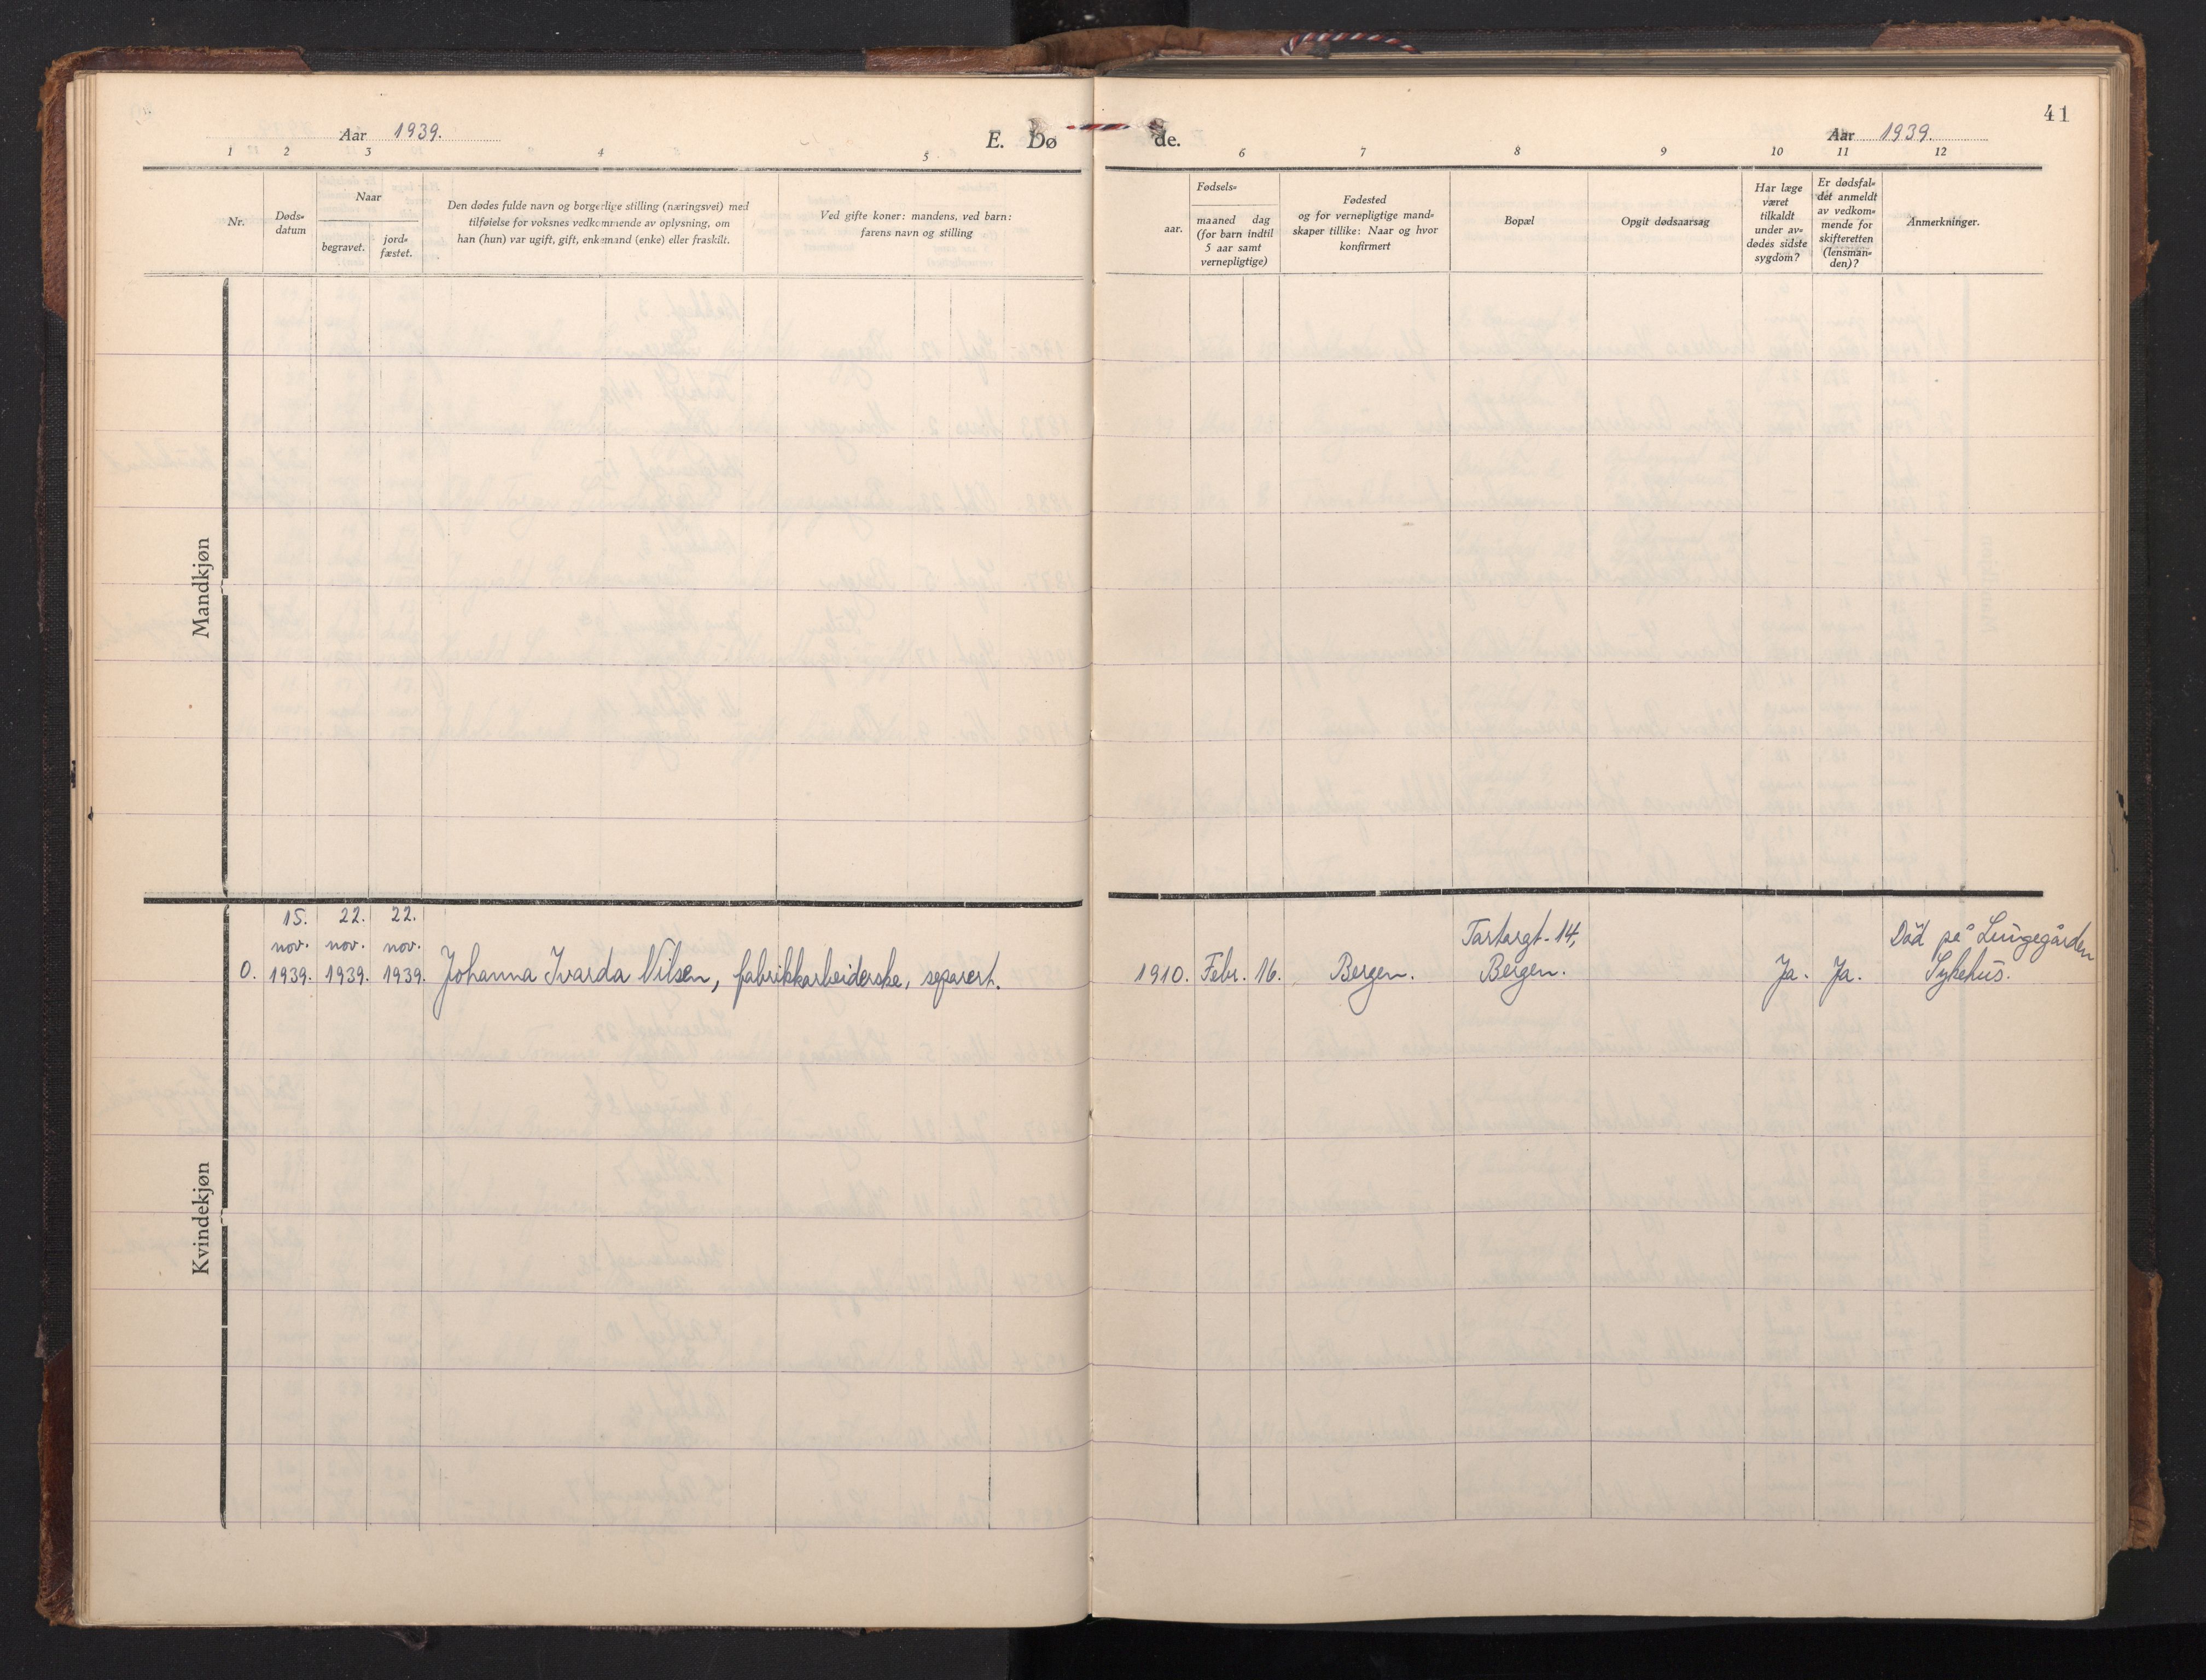 Aar 1939.
E. Dø
de.
Aar 1939.
41
1 2 3 4 5
6 7 8 9 10 11 12
Nr.
Døds=
datum
Naar
begravet.
jord=
fæstet.
Den dødes fulde navn og borgerlige stilling (næringsvei) med
tilføielse for voksnes vedkommende av oplysning, om
han (hun) var ugift, gift, enkemand (enke) eller fraskilt.
Ved gifte koner: mandens, ved barn:
farens navn og stilling
Fødsels=
aar.
maaned dag
(for barn indtil
5 aar samt
vernepligtige)
Fødested
og for vernepligtige mand=
skaper tillike: Naar og hvor
konfirmert
Bopæl
Opgit dødsaarsag
Har læge
været
tilkaldt
under av=
dødes sidste
sygdom?
Er dødsfal=
det anmeldt
av vedkom=
mende for
skifteretten
(lensman=
den)?
Anmerkninger.
Mandkjøn
Kvindekjøn
15. 22. 22.
nov. nov. nov.
0. 1939. 1939. 1939. Johanna Ivarda Nilsen, fabrikkarbeiderske, separert.
1910. Febr. 16. Bergen.
Tartargt. 14,
Bergen.
Ja. Ja.
Död på Lungegården
Sykehus.